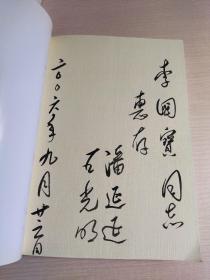 李國寳同志
惠存
潘延延
石光明
二〇〇六年九月廿二日